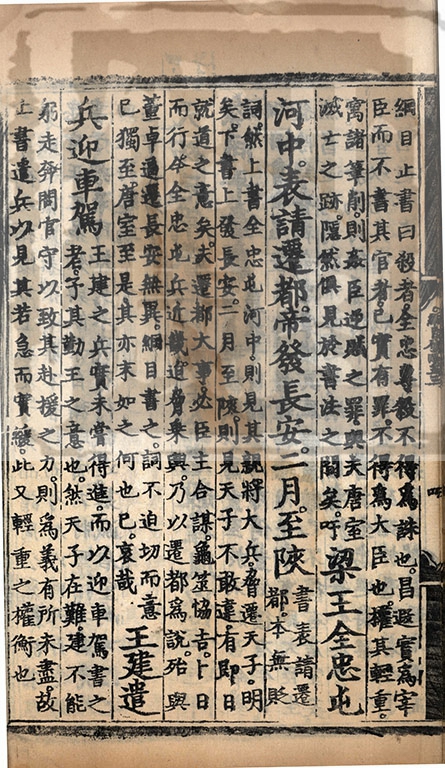 綱目止書曰殺者全忠專殺不得爲誅也。昌遐實爲宰
臣而不書其官者。已實有罪。不得爲大臣也。權其輕重。
寓諸筆削。則姦臣逆賊之罪。與夫唐室
滅亡之跡。隱然俱見於書法之間矣。吁梁王全忠屯
河中。表請遷都。帝發長安。二月。至陝書表請遷
都。本無貶
詞。然上書全忠屯河中。則見其親將大兵。脅遷天子。明
矣。下書上發長安。二月至陝。則見天子不敢違。有即日
就道之意矣。夫遷都大事。必臣主合謀。龜筮恊吉。卜日
而行。今全忠屯兵近畿。迫脅乘輿。乃以遷都爲說。殆與
董卓逼遷長安無異。綱目書之。詞不迫切而意
已獨至。唐室至是。其亦末如之何也已。哀哉王建遣
兵迎車駕王建之兵實未嘗得進。而以迎車駕書之
者。予其勤王之意也。然天子在難。建不能
躬走奔問官守。以致其赴援之力。則爲義有所未盡。故
止書遣兵以見其若急而實緩。此又輕重之權衡也